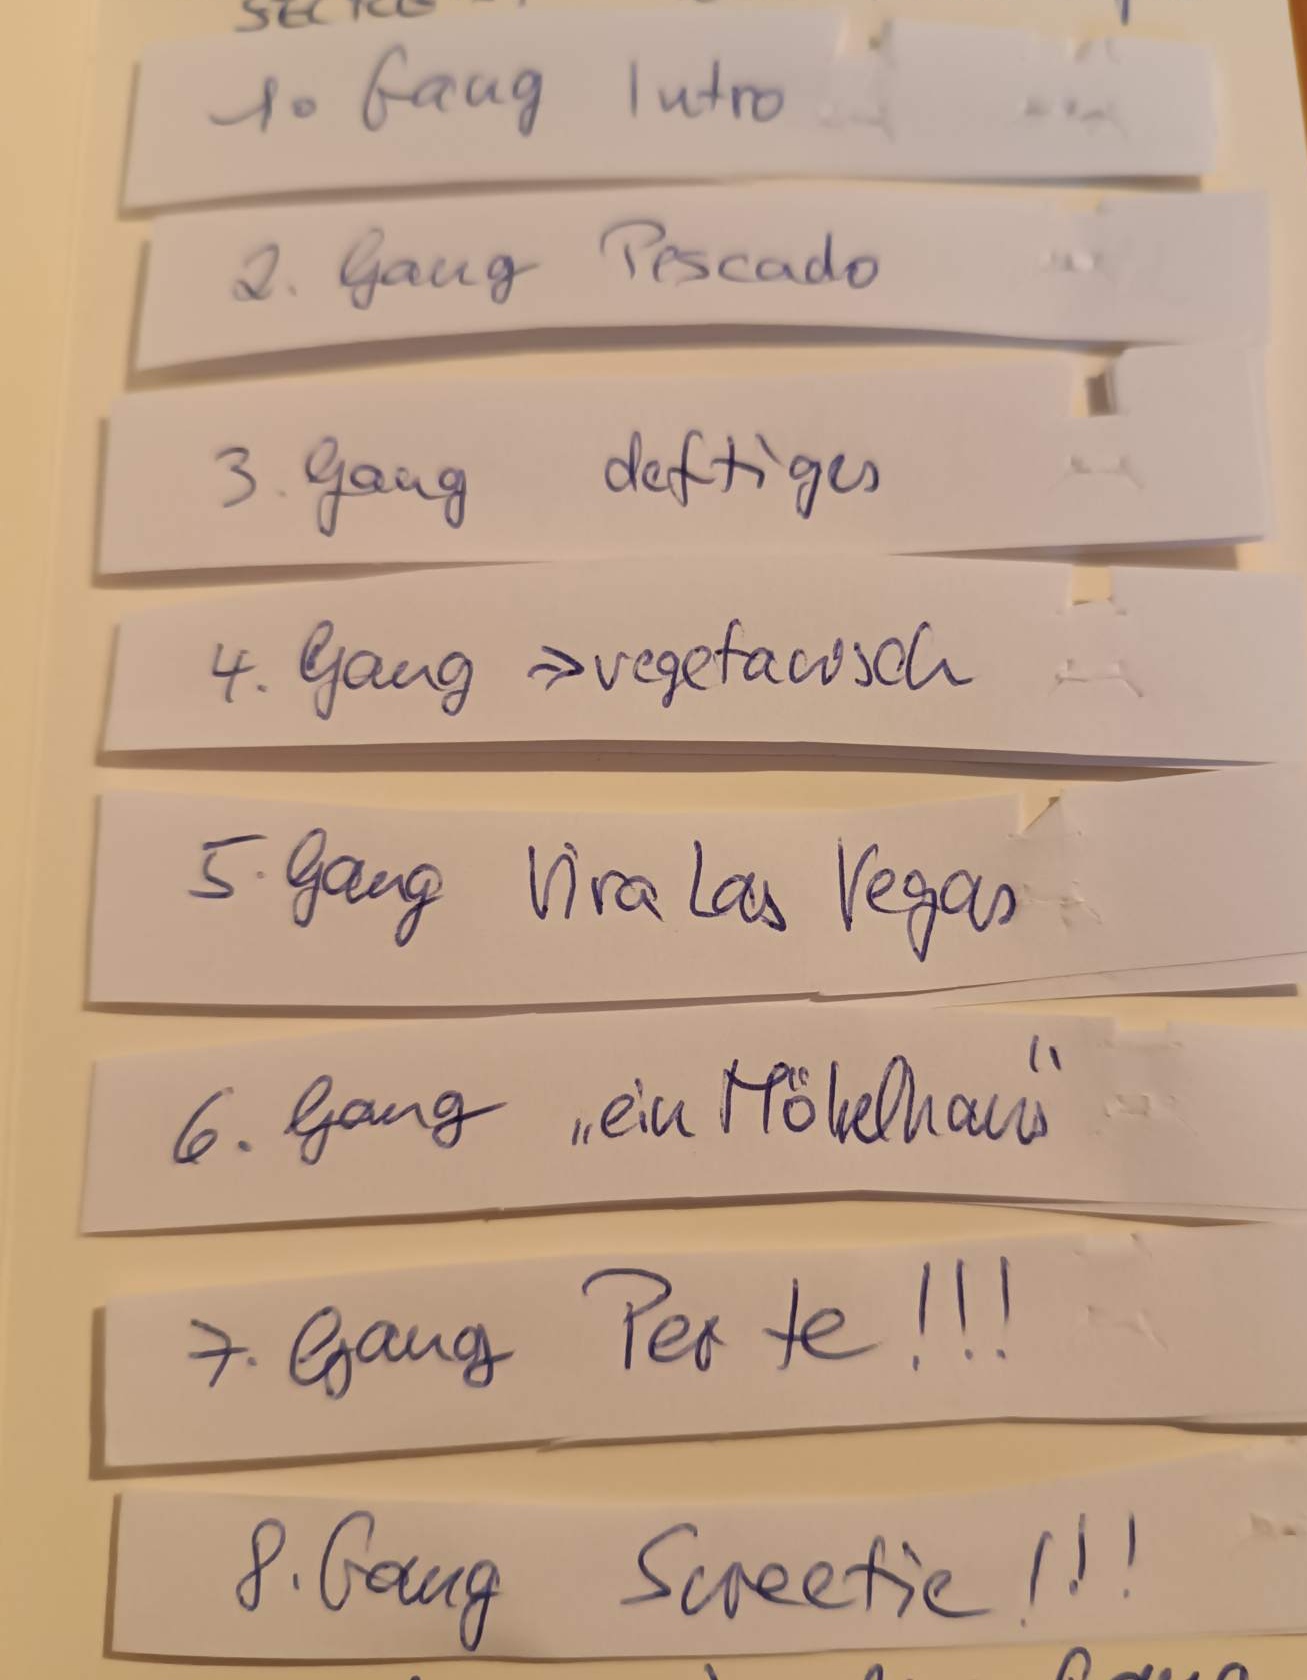 1. Gang Intro
2. Gang Pescado
3. Gang deftiges
4. Gang => vegetarisch
5. Gang Viva Las Vegas
6. Gang „ein Möbelhaus“
7. Gang Per te!!!
8. Gang Sweetie!!!